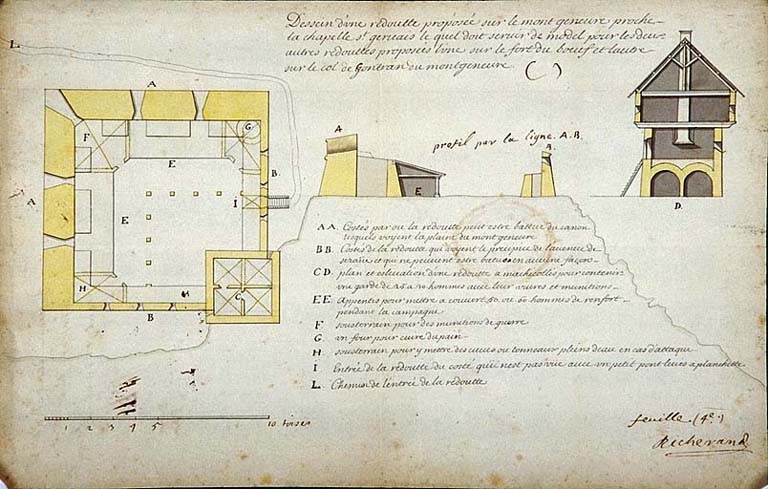 Dessein d'une redoutte proposée sur le mont geneure proche
la chapelle st. geruais le quel doit seruir de model pour les deux
autres redouttes proposées l'une sur le fort du bœuf et l'autre
sur le col de Gontran ou montgeneure.
L
A
F
G
E
B
A
E
I
H
C
B
1 2 3 4 5 10 toises
profil par la ligne. A. B.
A
E
B.
D.
AA. Costés par ou la redoutte peut estre battue du canon
lesquels voyent la plaine du mont geneure
BB. Costés de la redoutte qui voyent le precipice de l'auenue de
et qui ne peuuent estre batues en aucune façon
CD. plan et eleuation d'une redoutte a machicollis pour contenir
vne garde de 25 a 30 hommes auec leur viures et munitions
EE. Appentis pour mettre a couuert 50. ou 60 hommes de renfort
pendant la campagne
F sousterrain pour des munitions de guerre
G vn four pour cuire du pain
H sousterrain pour y mettre des cuues ou tonneaux pleins d'eau en cas d'attaque
I Entrée de la redoutte du costé qui n'est pas vûe auec vn petit pont leuis a planchette
L. Chemin de l'entrée de la redoutte
feuille (4e.)
Richerand